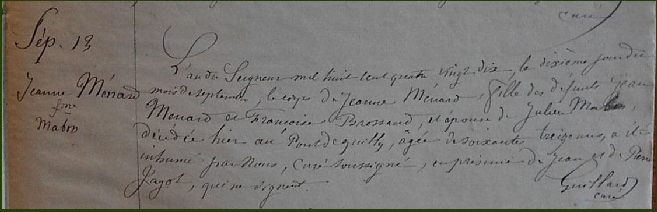 curé
Sép. 13
Jeanne Ménard
fme
Mabon
L'an du Seigneur mil huit cent quatre vingt dix, le dixième jour du
mois de septembre, le corps de Jeanne Ménard, fille des défunts Jean
Ménard et Françoise Brossaud, et épouse de Julien
décédée hier au Pont de quilly, âgée de soixante treize ans, a été
inhumé par Nous, Curé soussigné, en présence de Jean et de Pierre
Jagot, qui ne signent.
Guillard
curé